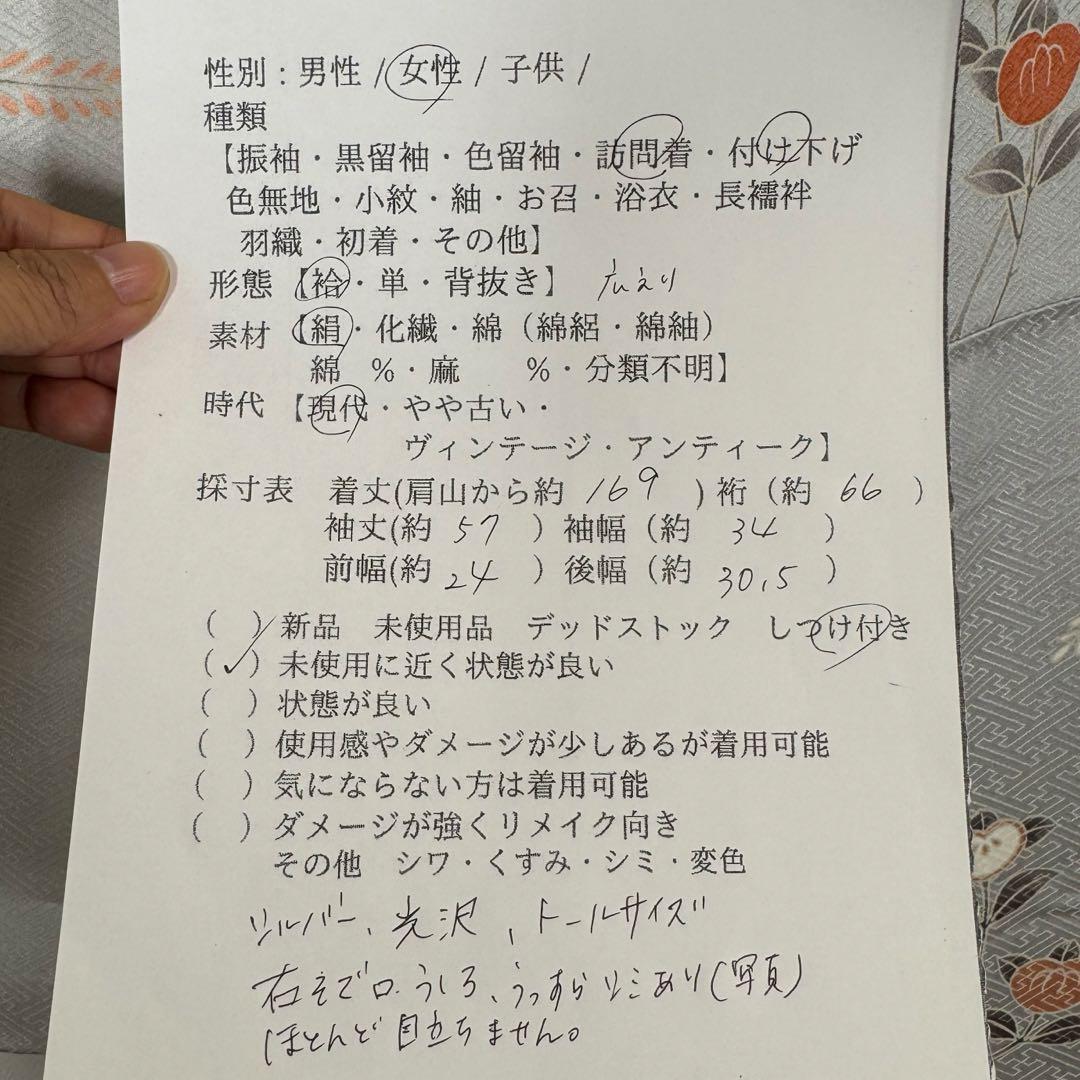 性別：男性 / 女性 / 子供 /
種類
【振袖・黒留袖・色留袖・訪問着・付け下げ
色無地・小紋・紬・お召・浴衣・長襦袢
羽織・初着・その他】
形態【袷・単・背抜き】 広えり
素材【絹・化繊・綿（綿絽・綿紬）
綿 %・麻 %・分類不明】
時代【現代・やや古い・
ヴィンテージ・アンティーク】
採寸表 着丈(肩山から約 169 ) 裄（約 66 ）
袖丈(約 57 ）袖幅（約 34 ）
前幅(約 24 ）後幅（約 30.5 ）
（ ）新品 未使用品 デッドストック しつけ付き
（✓）未使用に近く状態が良い
（ ）状態が良い
（ ）使用感やダメージが少しあるが着用可能
（ ）気にならない方は着用可能
（ ）ダメージが強くリメイク向き
その他 シワ・くすみ・シミ・変色
シルバー、光沢、トールサイズ
右そで口.うしろ、うっすらシミあり(写真)
ほとんど目立ちません。